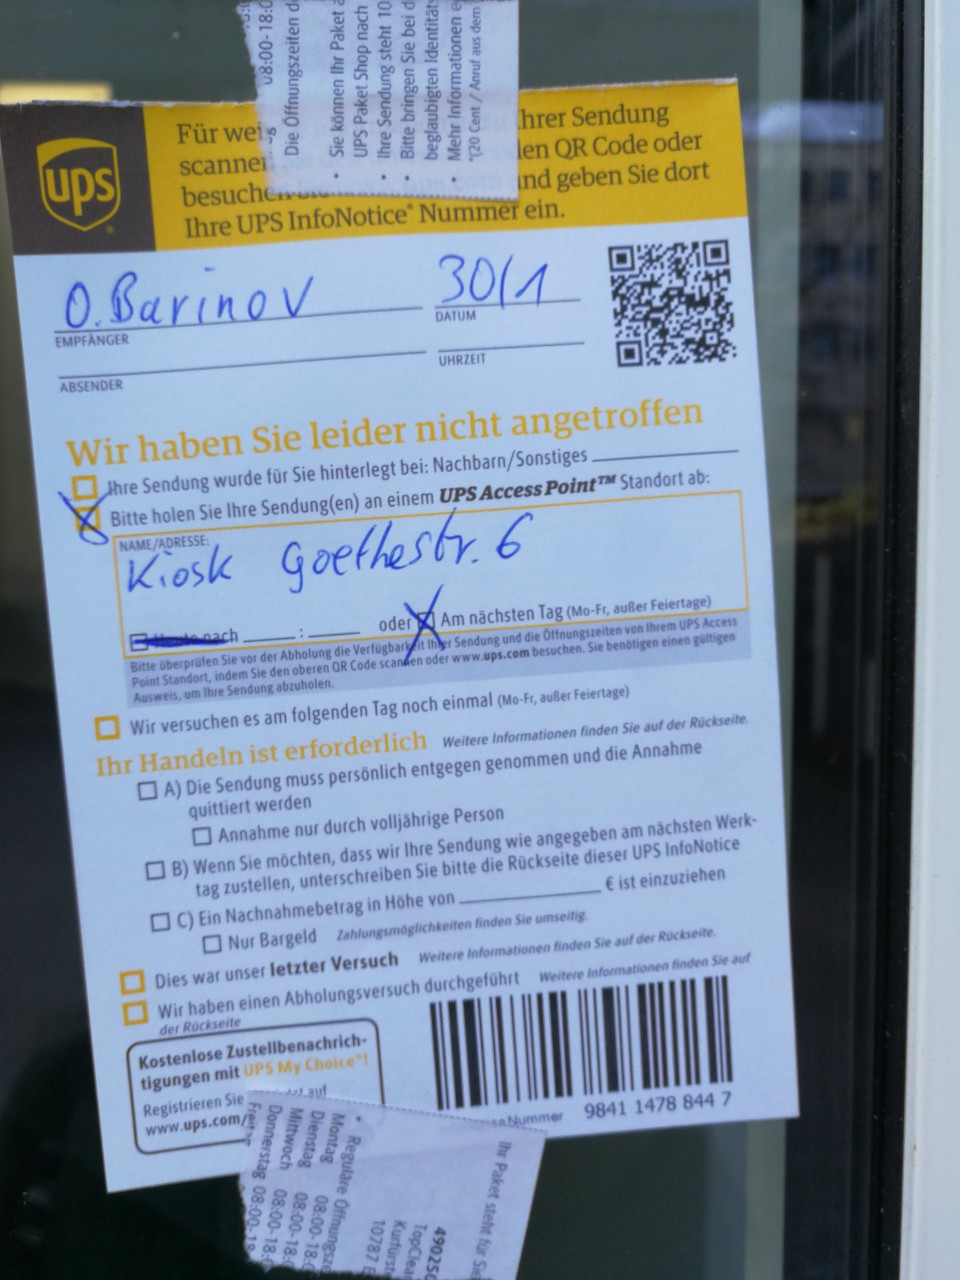 08:00-18:0
Die Öffnungszeiten d
• Sie können Ihr Paket a
UPS Paket Shop nach
• Ihre Sendung steht 10
• Bitte bringen Sie bei d
beglaubigten Identitäts
Mehr Informationen e
*(20 Cent / Anruf aus dem
ups
Für wei hrer Sendung
scannen en QR Code oder
besuchen und geben Sie dort
Ihre UPS InfoNotice® Nummer ein.
O. Barinov 30/1
EMPFÄNGER DATUM
ABSENDER UHRZEIT
Wir haben Sie leider nicht angetroffen
Ihre Sendung wurde für Sie hinterlegt bei: Nachbarn/Sonstiges
Bitte holen Sie Ihre Sendung(en) an einem UPS Access Point™ Standort ab:
NAME/ADRESSE:
Kiosk Goethestr. 6
Heute nach : oder Am nächsten Tag (Mo-Fr, außer Feiertage)
Bitte überprüfen Sie vor der Abholung die Verfügbarkeit Ihrer Sendung und die Öffnungszeiten von Ihrem UPS Access
Point Standort, indem Sie den oberen QR Code scannen oder www.ups.com besuchen. Sie benötigen einen gültigen
Ausweis, um Ihre Sendung abzuholen.
Wir versuchen es am folgenden Tag noch einmal (Mo-Fr, außer Feiertage)
Ihr Handeln ist erforderlich Weitere Informationen finden Sie auf der Rückseite.
A) Die Sendung muss persönlich entgegen genommen und die Annahme
quittiert werden
Annahme nur durch volljährige Person
B) Wenn Sie möchten, dass wir Ihre Sendung wie angegeben am nächsten Werk-
tag zustellen, unterschreiben Sie bitte die Rückseite dieser UPS InfoNotice
C) Ein Nachnahmebetrag in Höhe von € ist einzuziehen
Nur Bargeld Zahlungsmöglichkeiten finden Sie umseitig.
Dies war unser letzter Versuch Weitere Informationen finden Sie auf der Rückseite.
Wir haben einen Abholungsversuch durchgeführt Weitere Informationen finden Sie auf
der Rückseite
Kostenlose Zustellbenachrich-
tigungen mit UPS My Choice®!
Registrieren Sie auf
www.ups.com/
Nummer 9841 1478 844 7
Ihr Paket steht für Sie
49025
TopClea
Kurfürst
10787 B
• Reguläre Öffnungsze
Montag 08:00-18:
Dienstag 08:00-18:0
Mittwoch 08:00-18:0
Donnerstag 08:00-18:0
Freitag 08:00-18